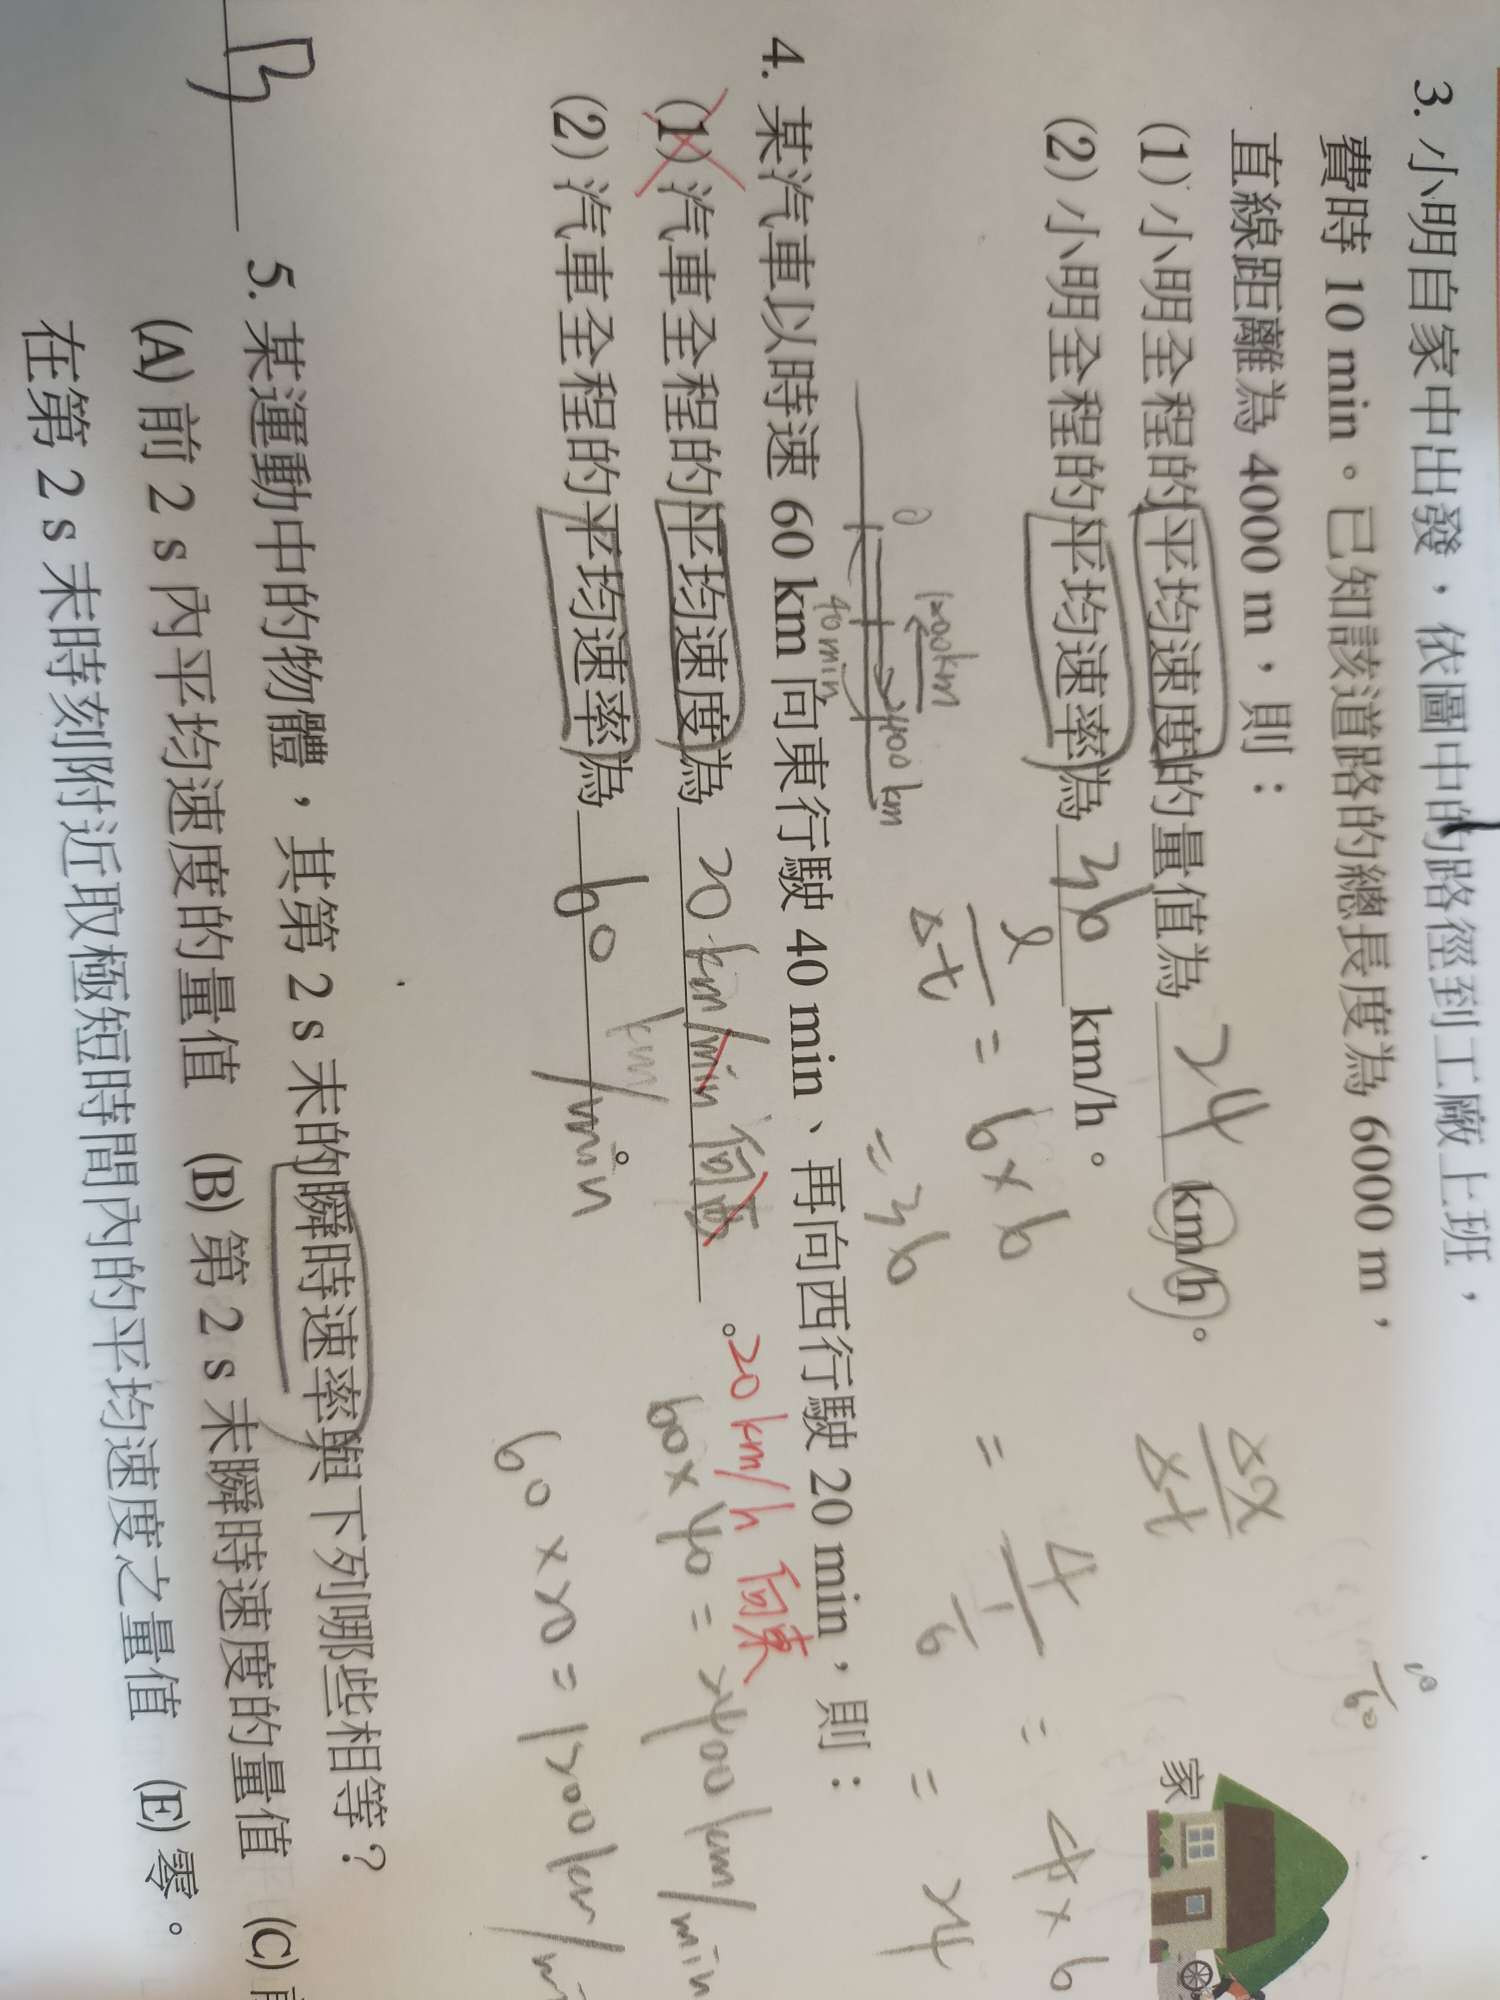 3. 小明自家中出發，依圖中的路徑到工廠上班，
費時 10 min。已知該道路的總長度為 6000 m，
直線距離為 4000 m，則：
(1) 小明全程的平均速度的量值為 24 km/h。
(2) 小明全程的平均速率為 36 km/h。
家
10/60
Δx/Δt = 4/(1/6) = 4×6
= 24
ℓ/Δt = 6×6
= 36
4. 某汽車以時速 60 km 向東行駛 40 min、再向西行駛 20 min，則：
0 1200km 2400 km
40 min
(1) 汽車全程的平均速度為 20 km/min 向西。20 km/h 向東
60×40 = 2400 km/min
(2) 汽車全程的平均速率為 60 km/min。
60×20 = 1200 km/
B 5. 某運動中的物體，其第 2 s 末的瞬時速率與下列哪些相等？
(A) 前 2 s 內平均速度的量值 (B) 第 2 s 末瞬時速度的量值 (C)
在第 2 s 末時刻附近取極短時間內的平均速度之量值 (E) 零。